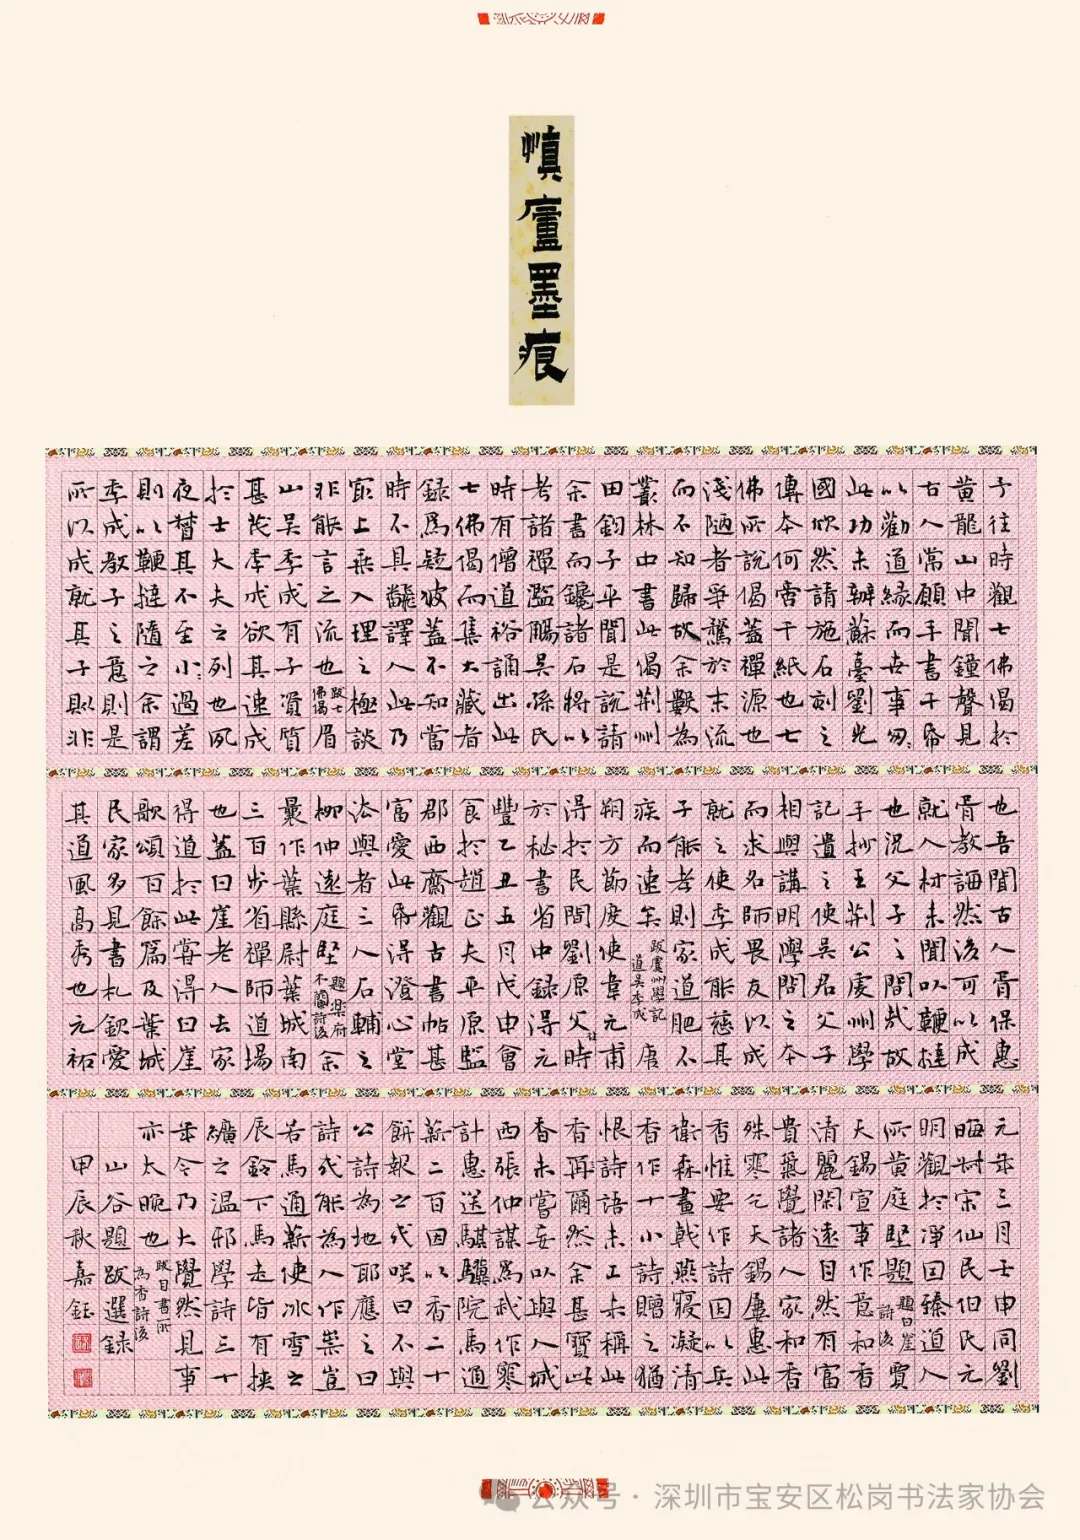 慎廬墨痕
予往時觀七佛偈於
黄龍山中聞鐘聲見
古人常願手書千帋
以勸道緣而世事匆匆
此功未辦蘇臺劉光
國欣然請施石刻之
傳本何啻千紙也七
佛所說偈蓋禪源也
淺陋者爭鶩於末流
而不知歸故余歎為
叢林中書此偈荆州
田鈞子平聞是說請
余書而鑱諸石將以
考諸禪濫觴吳孫氏
時有僧道裕誦出此
七佛偈而集大藏者
録為疑彼蓋不知當
時不具翻譯人此乃
最上乘入理之極談
非能言之流也跋七佛偈眉
山吳季成有子資質
甚茂季成欲其速成
於士大夫之列也夙
夜督其不至小小過差
則以鞭撻隨之余謂
季成教子之意則是
所以成就其子則非
也吾聞古人胥保惠
胥教誨然後可以成
就人材未聞以鞭撻
也況父子之間哉故
手抄王荆公虔州學
記遺之使吳君父子
相與講明學問之本
而求名師畏友以成
就之使季成能慈其
子能孝則家道肥不
疾而速矣跋虔州學記遺吳季成唐
朔方節度使韋元甫
得於民間劉原父時
於秘書省中録得元
豐乙丑五月戊申會
食於趙正夫平原監
郡西齋觀古書帖甚
富愛此帋得澄心堂
法與者三人石輔之
柳仲遠庭堅題樂府木蘭詩後余
曩作葉縣尉葉城南
三百步省禪師道場
也蓋曰崖老人去家
得道於此嘗得曰崖
歌頌百餘篇及葉城
民家多見書札欽愛
其道風高秀也元祐
元年三月壬申同劉
晦叔宋仙民伯氏元
明觀於淨因臻道人
所黄庭堅題題曰崖詩後賈
天錫宣事作意和香
清麗閑遠自然有富
貴氣覺諸人家和香
殊寒乞天錫屢惠此
香惟要作詩因以兵
衛森畫戟燕寢凝清
香作十小詩贈之猶
恨詩語未工未稱此
香再爾然余甚寶此
香未嘗妄以與人城
西張仲謀為我作寒
計惠送騏驥院馬通
薪二百因以香二十
餅報之或咲曰不與
公詩為地耶應之曰
詩或能為人作祟豈
若馬通薪使冰雪之
辰鈴下馬走皆有挾
纊之温邪學詩三十
年今乃大覺然見事
亦太晚也跋自書所為香詩後
山谷題跋選録
甲辰秋嘉鈺
公众号·深圳市宝安区松岗书法家协会